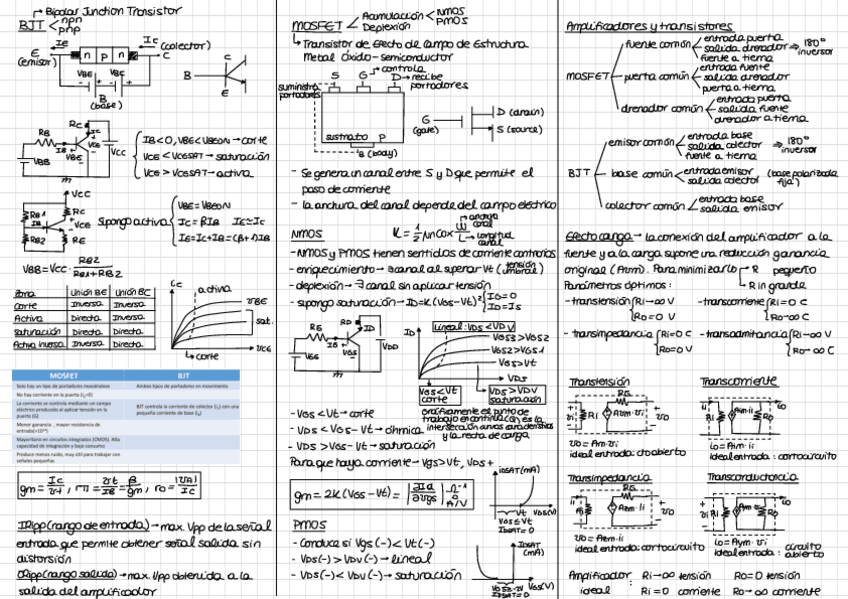 Bipolar Junction Transistor
BJT < npn
pnp
IE
IC (colector)
E
(emisor)
n P n
C
VBE
VBC
B
(base)
B
C
E
RB
RC
IC
IB
VCE
VBE
VBB
VCC
IB<0, VBE<VBEON → corte
VCE<VCESAT → saturación
VCE>VCESAT → activa
VCC
RB1
RC
IB
VCE
RB2
RE
Supongo activa
VBE=VBEON
IC=βIB IE≃IC
IE=IC+IB=(β+1)IB
VBB=VCC · RB2 / RB1+RB2
Zona Unión BE Unión BC
Corte Inversa Inversa
Activa Directa Inversa
Saturación Directa Directa
Activa inversa Inversa Directa
IC
activa
VBE
sat.
corte
VCE
MOSFET BJT
Solo hay un tipo de portadores moviéndose Ambos tipos de portadores en movimiento
No hay corriente en la puerta (IG=0)
La corriente se controla mediante un campo eléctrico producido al aplicar tensión en la puerta (G) BJT controla la corriente de colector (IC) con una pequeña corriente de base (IB)
Menor ganancia, mayor resistencia de entrada
Mayoritario en circuitos integrados (CMOS). Alta capacidad de integración y bajo consumo
Produce menos ruido, muy útil para trabajar con señales pequeñas.
gm = IC/VT, rπ = VT/IB = β/gm, ro = |VA|/IC
IRipp (rango de entrada) → max. Vpp de la señal
entrada que permite obtener señal salida sin
distorsión
ORipp (rango salida) → max. Vpp obtenida a la
salida del amplificador
MOSFET < Acumulación < NMOS
PMOS
Deplexión
Transistor de Efecto de Campo de Estructura
Metal Óxido-Semiconductor
controla
suministra
portadores
S G D → recibe
portadores
sustrato P
B (body)
G
(gate)
D (drain)
S (source)
- Se genera un canal entre S y D que permite el
paso de corriente
- la anchura del canal depende del campo eléctrico
NMOS
K = 1/2 μn Cox W/L
anchura
canal
longitud
canal
- NMOS y PMOS tienen sentidos de corriente contrarios
- enriquecimiento → ∃ canal al superar Vt (tensión umbral)
- deplexión → ∃ canal sin aplicar tensión
- supongo saturación → ID=K(VGS-Vt)² IG=0
ID=IS
RG
RD
ID
VGG
VGS
VDD
ID
lineal: VDS<VDV
VGS3>VGS2
VGS2>VGS1
VGS>Vt
VDS
VGS<Vt
corte
VDS>VDV
saturación
gráficamente el punto de
trabajo en continua es la
intersección curvas características
y la recta de carga
- VGS<Vt → corte
- VDS<VGS-Vt → óhmica
- VDS>VGS-Vt → saturación
Para que haya corriente → Vgs>Vt, VDS+
gm = 2K(VGS-Vt) = |∂Id/∂vgs| Ω-1
A/V
IDSAT (mA)
Vt
VGS(V)
VGS≤Vt
IDSAT=0
PMOS
- Conduce si VGS(-)<Vt(-)
- VDS(-)>VDV(-) → lineal
- VDS(-)<VDV(-) → saturación
IDSAT
(mA)
IDSAT=0
VGS(V)
Amplificadores y transistores
MOSFET
fuente común
entrada puerta
salida drenador
fuente a tierra
⇒ 180°
inversor
puerta común
entrada fuente
salida drenador
puerta a tierra
drenador común
entrada puerta
salida fuente
drenador a tierra
BJT
emisor común
entrada base
salida colector
fuente a tierra
⇒ 180°
inversor
base común
entrada emisor
salida colector
(base polarizada
fija)
colector común
entrada base
salida emisor
Efecto carga → la conexión del amplificador a la
fuente y a la carga supone una reducción ganancia
original (Atvm). Para minimizarlo → R pequeño
R in grande
Parámetros óptimos:
- transtensión Ri→∞ V
Ro=0 V
- transcorriente Ri=0 C
Ro→∞ C
- transimpedancia Ri=0 C
Ro=0 V
- transadmitancia Ri→∞ V
Ro→∞ C
Transtensión
Ro
vi
Ri
Avm·vi
vo
vo=Avm·vi
ideal entrada: cto abierto
Transcorriente
ii
Ri
Aim·ii
Ro
io
io=Aim·ii
ideal entrada: cortocircuito
Transimpedancia
Ro
ii
Ri
Azm·ii
vo
vo=Azm·ii
ideal entrada: cortocircuito
Transconductancia
vi
Ri
Ro
io
io=Aym·vi
ideal entrada: circuito
abierto
Amplificador
ideal : Ri→∞ tensión Ro=0 tensión
Ri=0 corriente Ro→∞ corriente